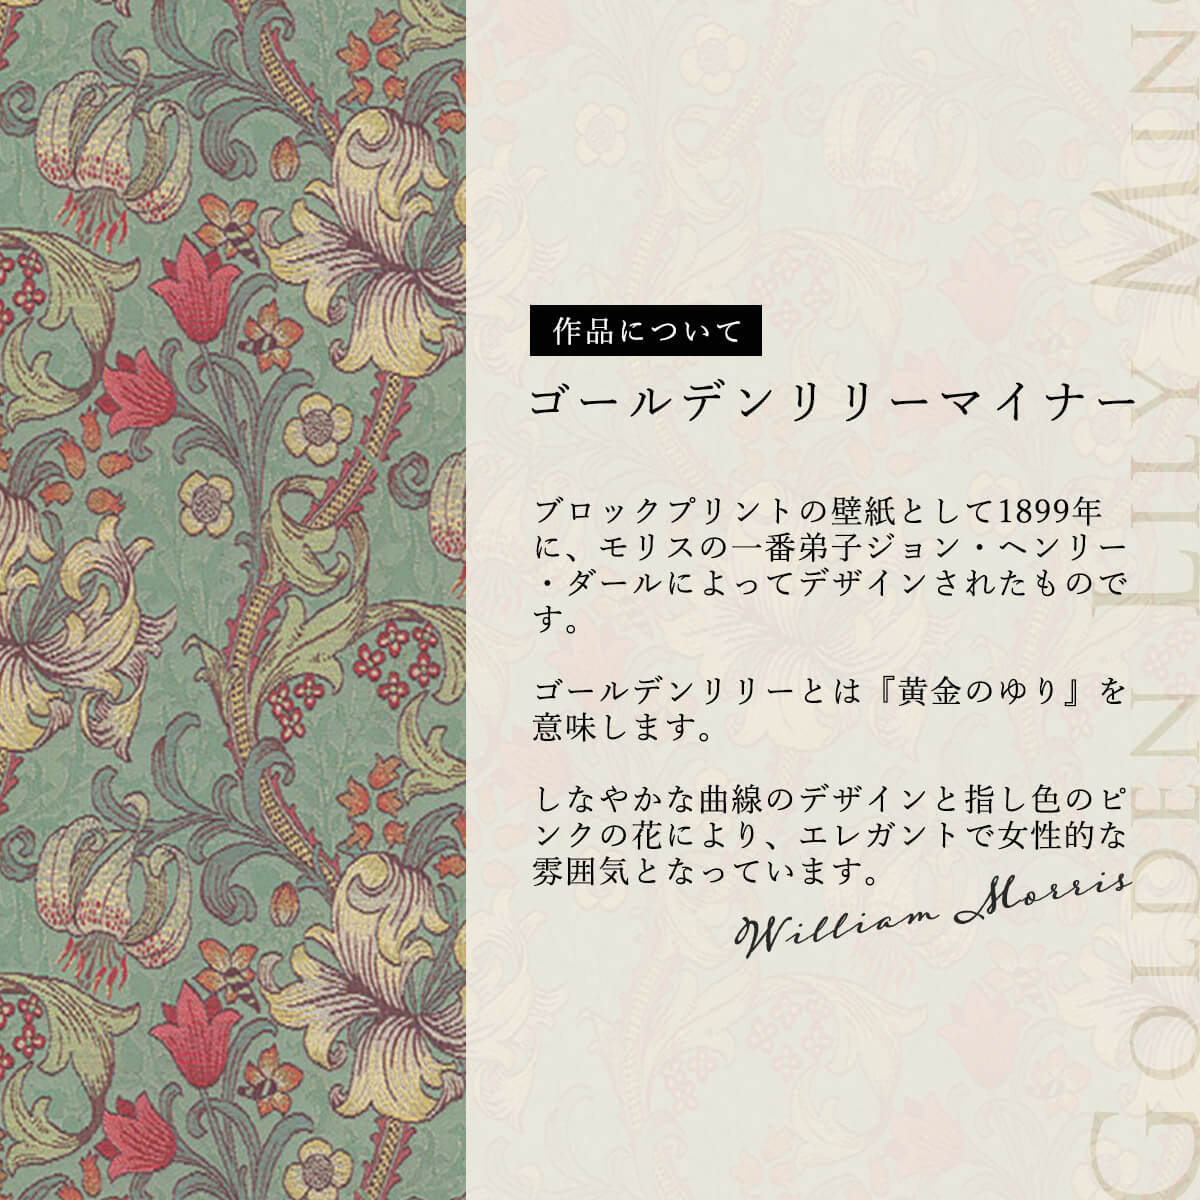 作品について
ゴールデンリリーマイナー
ブロックプリントの壁紙として1899年
に、モリスの一番弟子ジョン・ヘンリー
・ダールによってデザインされたもので
す。
ゴールデンリリーとは『黄金のゆり』を
意味します。
しなやかな曲線のデザインと指し色のピ
ンクの花により、エレガントで女性的な
雰囲気となっています。
William Morris
GOLDEN LILY MIN